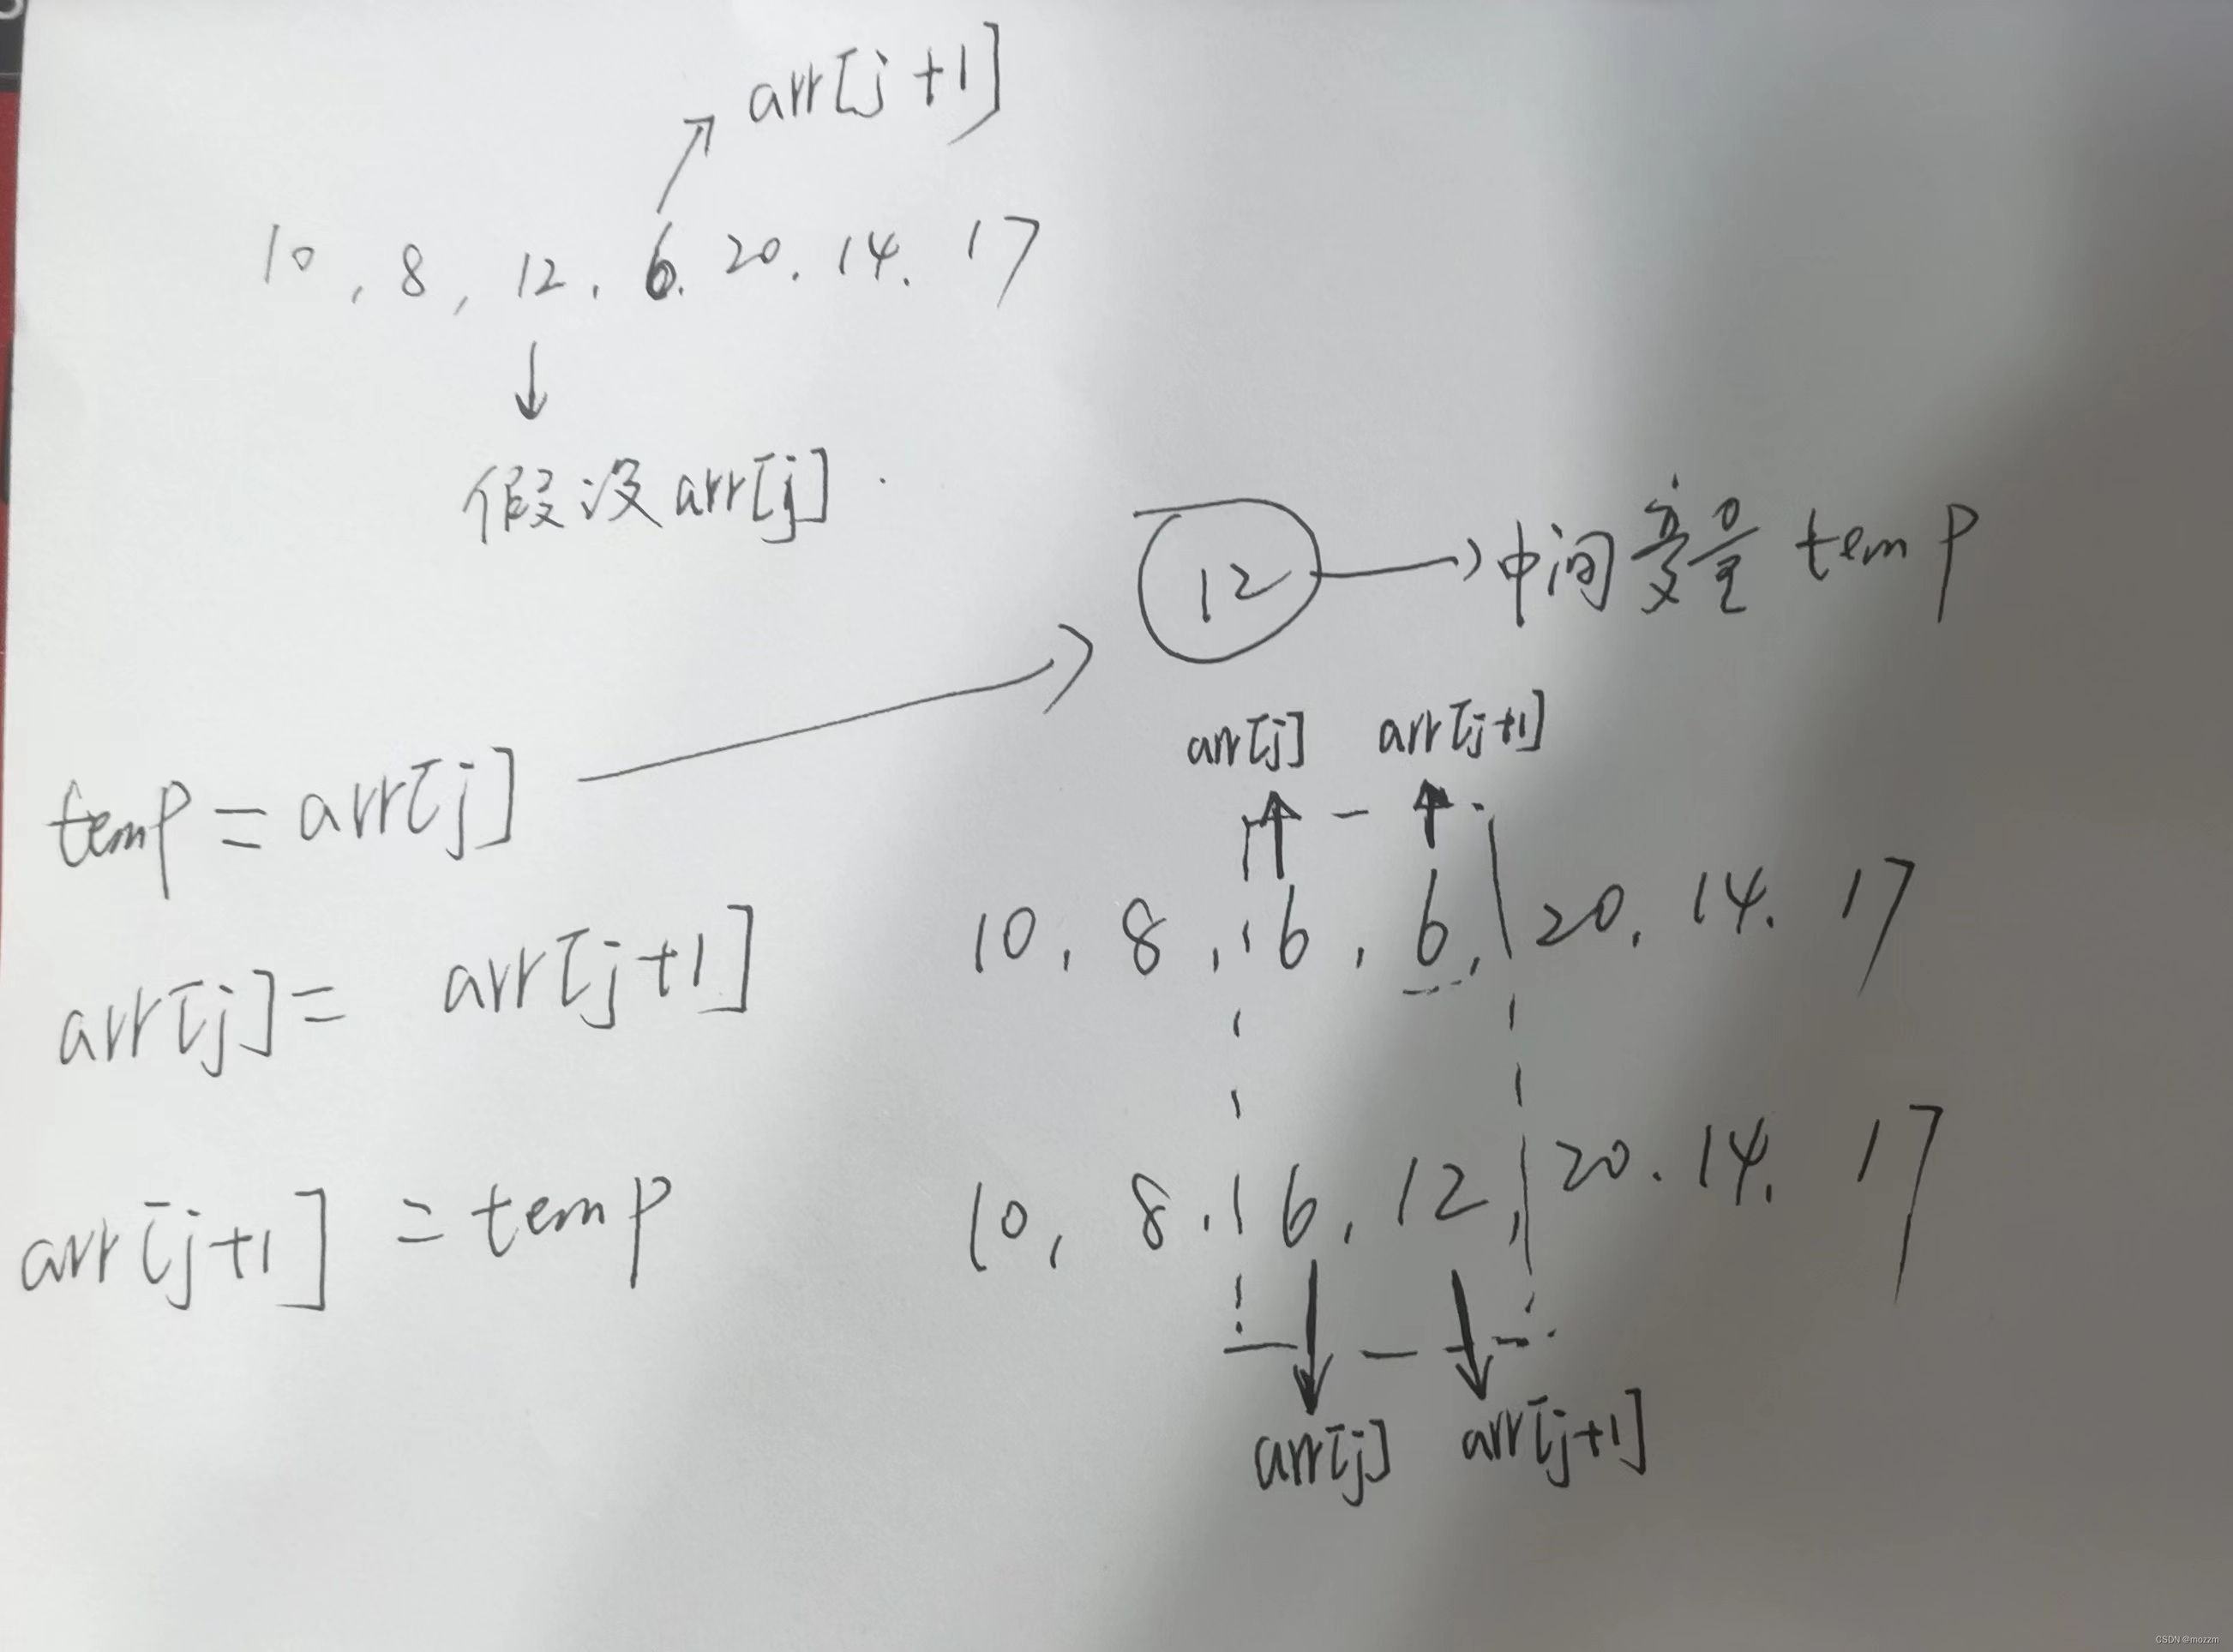 arr[j+1]
10, 8, 12, 6, 20, 14, 17
假设arr[j]
12 中间变量 temp
arr[j] arr[j+1]
temp = arr[j]
10, 8, 6, 6, 20, 14, 17
arr[j] = arr[j+1]
10, 8, 6, 12, 20, 14, 17
arr[j+1] = temp
arr[j] arr[j+1]
CSDN @mozzm